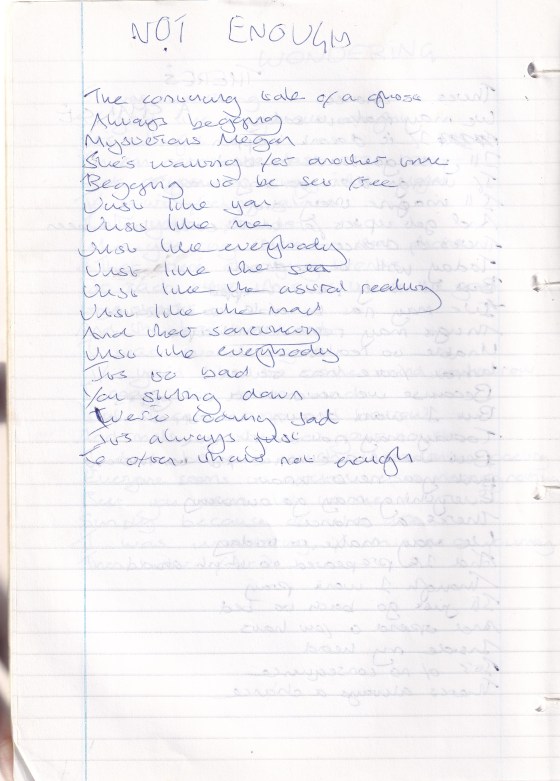 NOT ENOUGH
The continuing tale of a
Always begging
Mysterious Megan
She's waiting for another time
Begging to be set free
Just like you
Just like me
Just like everybody
Just like the
Just like the astral reading
Just like the mad
And that sanctuary
Just like everybody
It's so bad
You sitting down
We're looking sad
It's always just
that's not enough